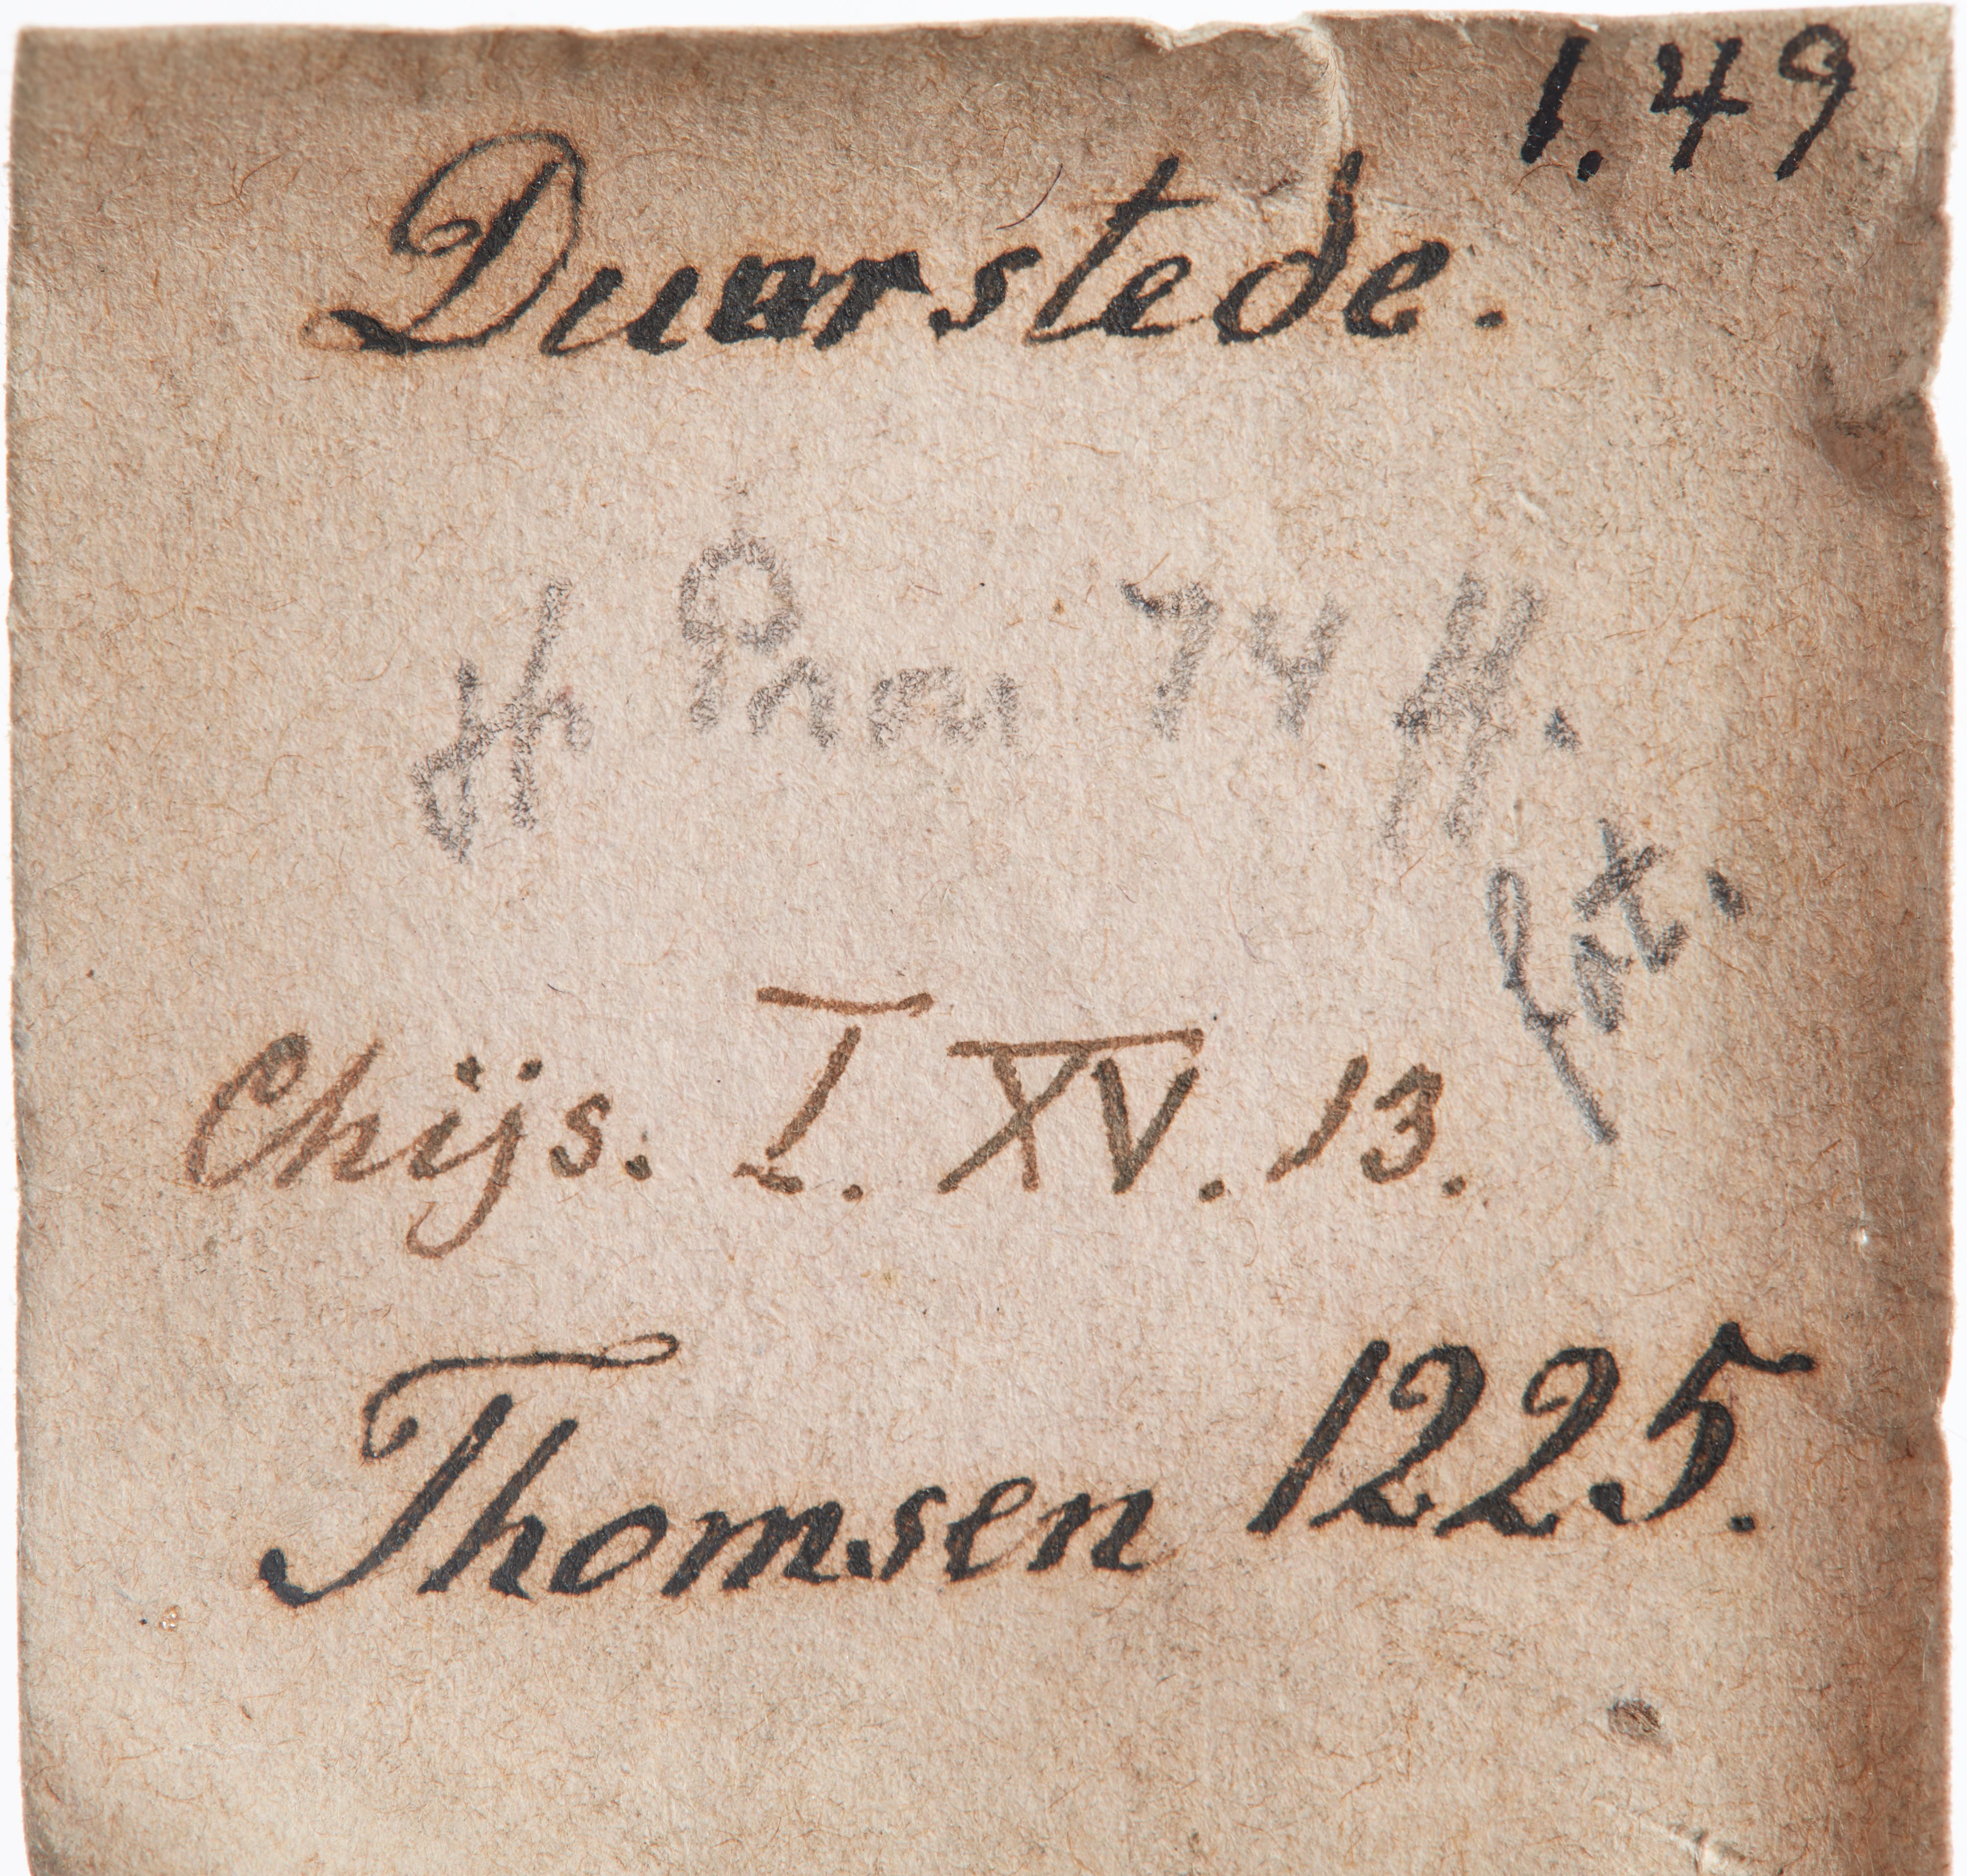 1.49
Duurstede.
74 ff.
fot.
Chijs. I. XV. 13.
Thomsen 1225.